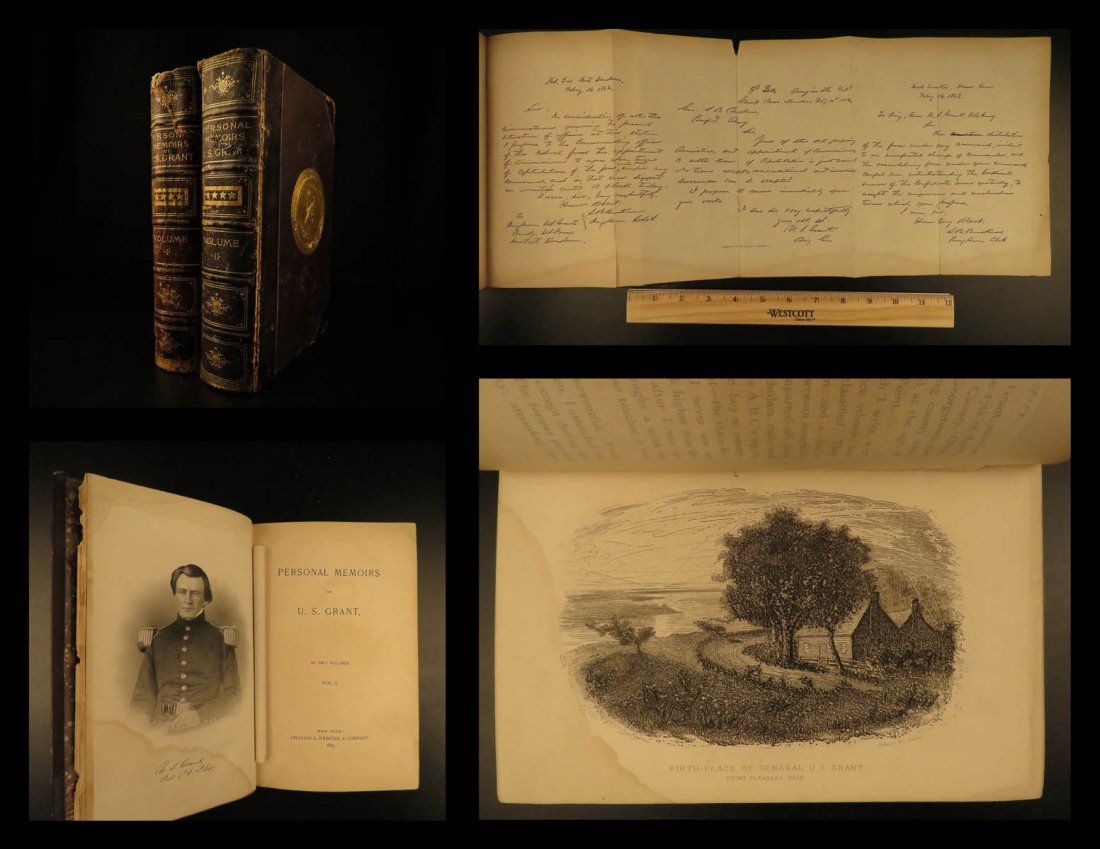 PERSONAL
MEMOIRS
OF
S. GRANT
VOLUME
I
PERSONAL
MEMOIRS
OF
U.S. GRANT
VOLUME
II
Hd Qrs Fort Donelson,
Feby 16 1862
Sir:
In consideration of all the
circumstances governing the present
situation of affairs at this station
I propose to the Commanding officer
of the Federal forces the appointment
of Commissioners to agree upon terms
of Capitulation of the forces and
under my
command, and in that view suggest
an armistice until 12 o'clock today.
I am, Sir, very respectfully,
Hd Qrs Army in the Field
Camp near Donelson, Feby 16th 1862
Gen. S. B. Buckner
Confed. Army
Sir
Yours of this date proposing
Armistice, and appointment of Commissioners
to settle terms of Capitulation is just received.
No terms except unconditional and immediate
surrender can be accepted.
I propose to move immediately upon
your works.
I am Sir, very respectfully
your obt. svt.
U. S. Grant
Brig. Gen.
Feby 16 1862
To Brig. Gen. U. S. Grant U.S. Army
Sir
The distribution
of the forces under my command, incident
to an unexpected change of commanders, and
the overwhelming force under your command
compel me, notwithstanding the brilliant
success of the Confederate arms yesterday, to
accept the ungenerous and unchivalrous
terms which you propose.
I am, sir,
1 2 3 4 5 6 7 8 9 10 11 12
WESTCOTT
PERSONAL MEMOIRS
OF
U. S. GRANT.
IN TWO VOLUMES
VOL. I.
NEW YORK
CHARLES L. WEBSTER & COMPANY
1885
U. S. Grant
BIRTH-PLACE OF GENERAL U. S. GRANT
POINT PLEASANT, OHIO